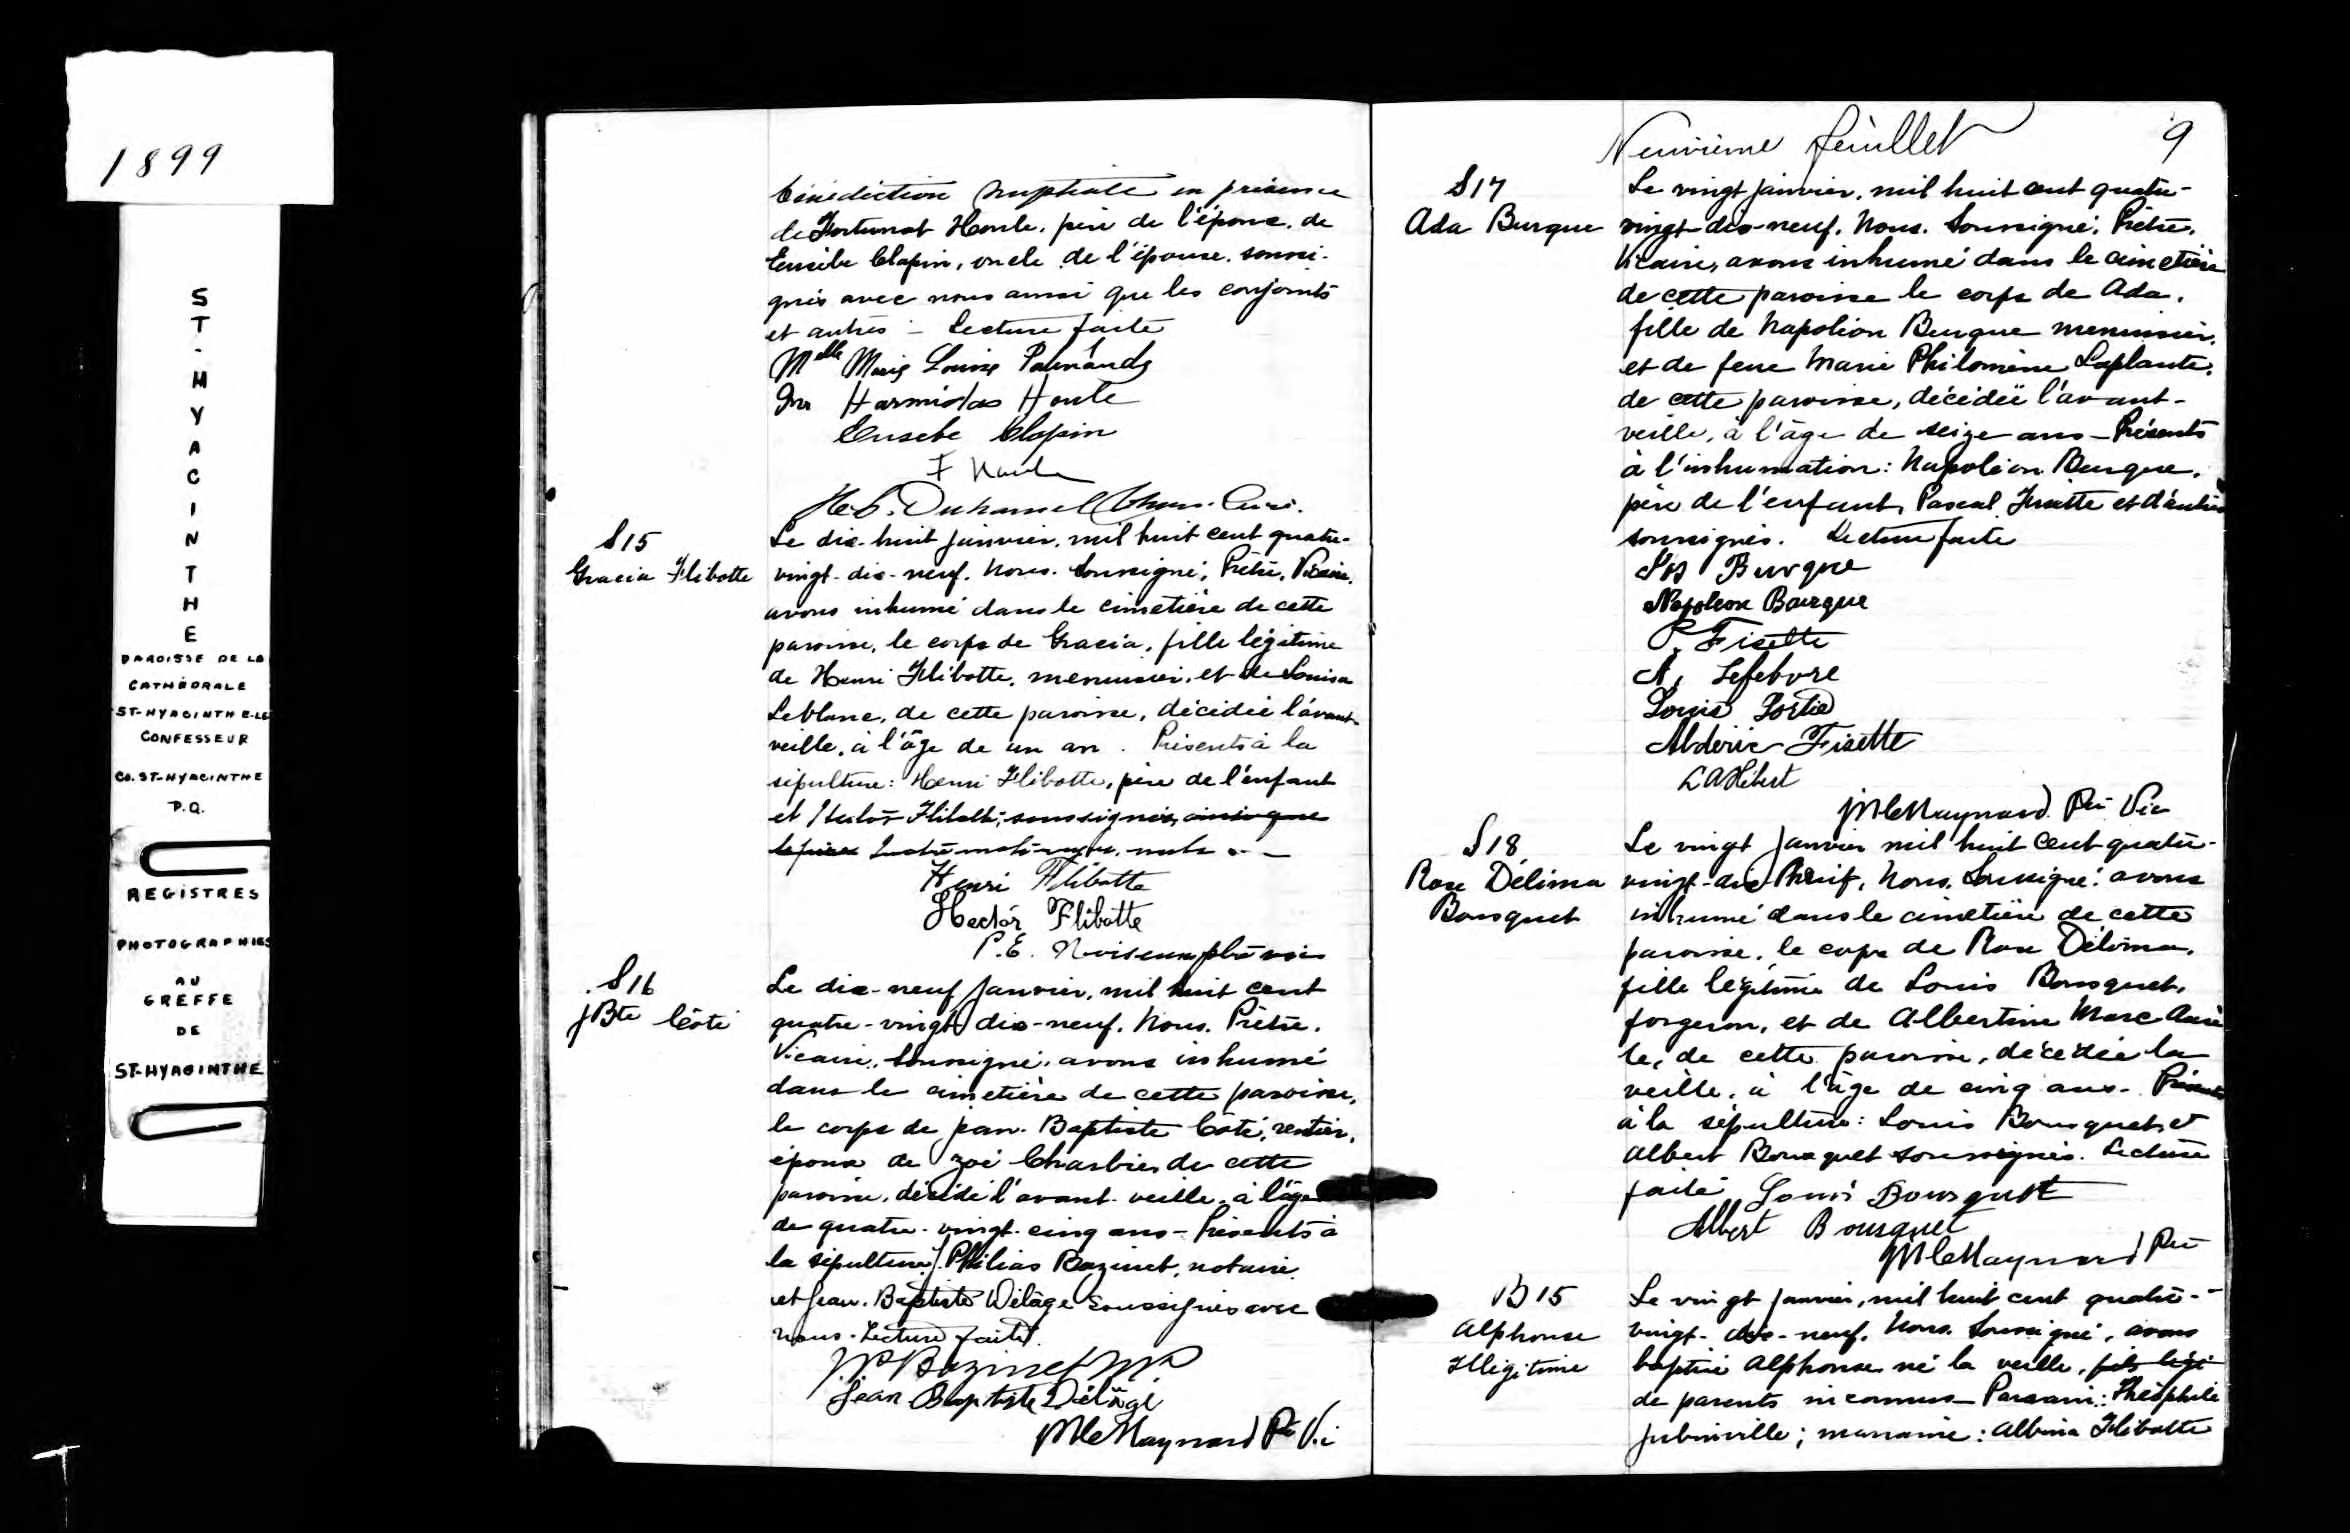 1899
ST-HYACINTHE
PAROISSE DE LA
CATHÉDRALE
ST-HYACINTHE-LE
CONFESSEUR
CO. ST-HYACINTHE
P.Q.
REGISTRES
PHOTOGRAPHIES
AU
GREFFE
DE
ST-HYACINTHE
bénédiction nuptiale en présence
de Fortunat Houle, père de l'époux, de
Eusèbe Clapin, oncle de l'épouse, soussi-
gnés avec nous ainsi que les conjoints
et autres - Lecture faite
Melle Marie Louise
Mr Harmidas Houle
Eusebe Clapin
F Houle
H.C. Duhamel Chan. Curé.
S15
Gracia Flibotte
Le dix-huit janvier, mil huit cent quatre-
vingt-dix-neuf, Nous, Soussigné, Prêtre, Vicaire,
avons inhumé dans le cimetière de cette
paroisse, le corps de Gracia, fille légitime
de Henri Flibotte, menuisier, et de Louisa
Leblanc, de cette paroisse, décédée l'avant-
veille, à l'âge de un an. Présents à la
sépulture: Henri Flibotte, père de l'enfant
et Hector Flibotte, soussignés, ainsi que
nuls
Henri Flibotte
Hector Flibotte
P.E. Noiseux ptre vic
S16
J Bte Côté
Le dix-neuf janvier, mil huit cent
quatre-vingt dix-neuf, Nous, Prêtre,
Vicaire, Soussigné, avons inhumé
dans le cimetière de cette paroisse,
le corps de Jean-Baptiste Côté, rentier,
époux de Zoé de cette
paroisse, décédé l'avant-veille, à l'âge
de quatre-vingt-cinq ans - Présents à
la sépulture J. Philias Bazinet, notaire
et Jean-Baptiste Délâge soussignés avec
nous. Lecture faite.
J.P. Bazinet
Jean Baptiste Délâge
Maynard Ptre Vic
Neuvième feuillet 9
S17
Ada Burque
Le vingt janvier, mil huit cent quatre-
vingt-dix-neuf, Nous, Soussigné, Prêtre,
Vicaire, avons inhumé dans le cimetière
de cette paroisse le corps de Ada,
fille de Napoléon Burque menuisier,
et de feue Marie Philomène Laplante,
de cette paroisse, décédée l'avant-
veille, à l'âge de seize ans - Présents
à l'inhumation: Napoléon Burque,
père de l'enfant, Pascal Fisette et d'autres
soussignés. Lecture faite
Burque
Napoleon Bourque
P. Fisette
A. Lefebvre
Louis Fortier
Alderic Fisette
L A Hébert
Maynard Ptre Vic
S18
Rose Délima
Bousquet
Le vingt janvier mil huit cent quatre-
vingt-dix neuf, Nous, Soussigné, avons
inhumé dans le cimetière de cette
paroisse, le corps de Rose Délima,
fille légitime de Louis Bousquet,
forgeron, et de Albertine Marc Aurè
le, de cette paroisse, décédée la
veille, à l'âge de cinq ans - Présents
à la sépulture: Louis Bousquet et
Albert Bousquet soussignés. Lecture
faite Louis Bousquet
Albert Bousquet
Maynard Ptre
B15
Alphonse
Illégitime
Le vingt janvier, mil huit cent quatre-
vingt-dix-neuf, Nous Soussigné, avons
baptisé Alphonse né la veille, fils légi
de parents inconnus - Parrain: Théophile
Jubinville; marraine: Albina Flibotte